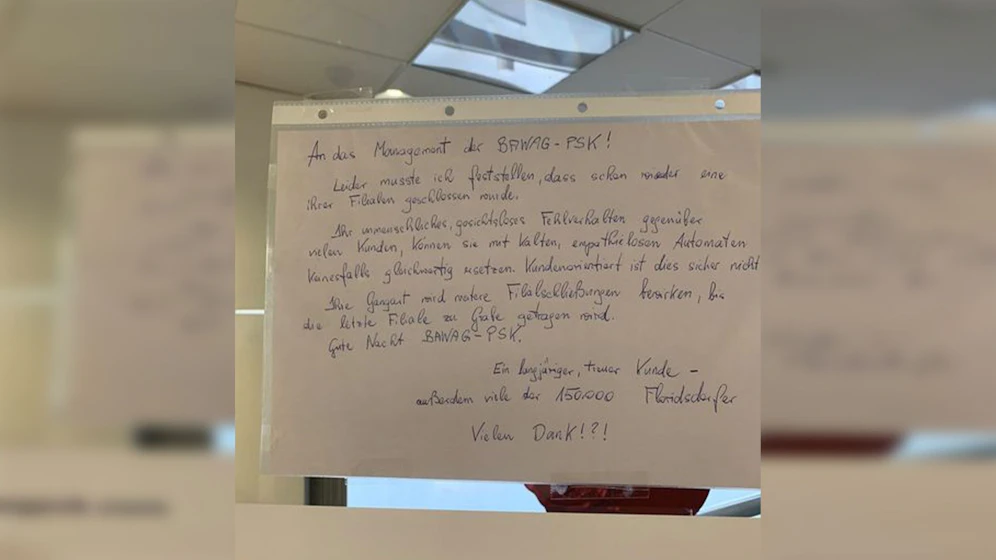 An das Management der BAWAG-PSK!
Leider musste ich feststellen, dass schon wieder eine
ihrer Filialen geschlossen wurde.
Ihr unmenschliches, gesichtsloses Fehlverhalten gegenüber
vielen Kunden, können sie mit kalten, empathielosen Automaten
keinesfalls gleichwertig ersetzen. Kundenorientiert ist dies sicher nicht
Ihre Gangart wird weitere Filialschließungen bewirken, bis
die letzte Filiale zu Grabe getragen wird.
Gute Nacht BAWAG-PSK.
Ein langjähriger, treuer Kunde -
außerdem viele der 150.000 Floridsdorfer
Vielen Dank!?!